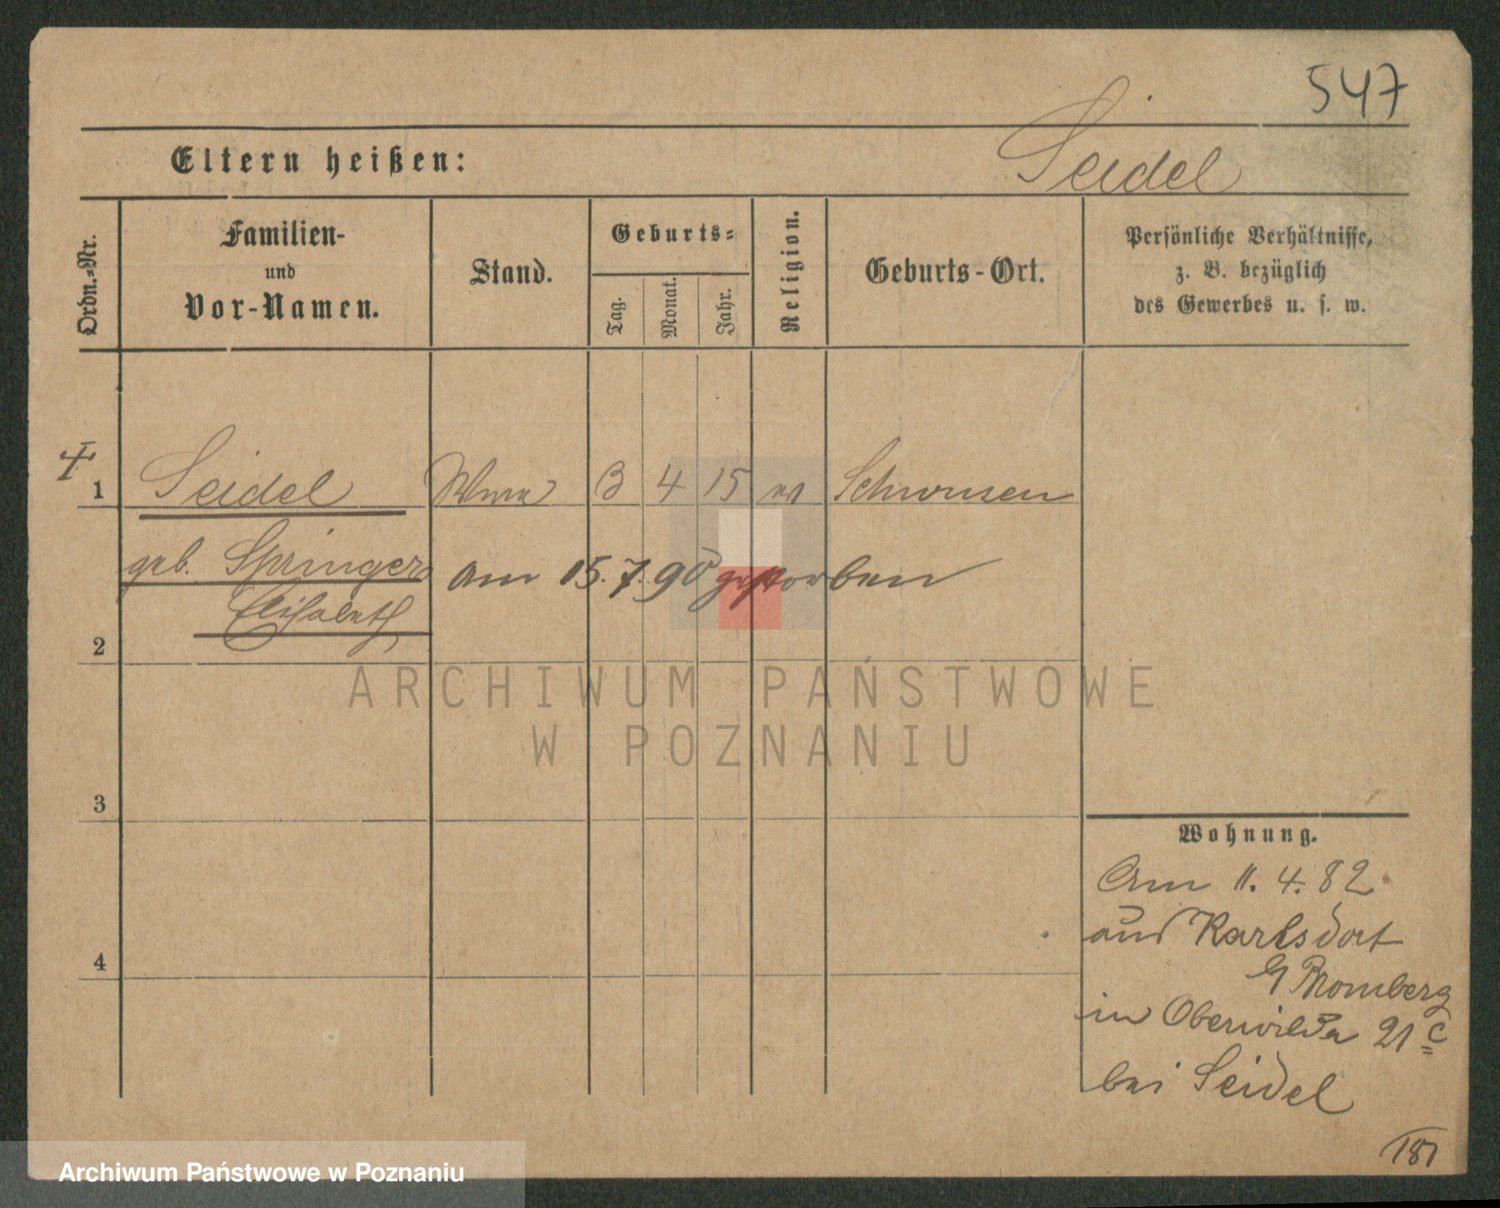 547
Eltern heißen: Seidel
Ordn.-Nr.
Familien-
und
Vor-Namen.
Stand.
Geburts-
Tag.
Monat.
Jahr.
Religion.
Geburts-Ort.
Persönliche Verhältnisse,
z. B. bezüglich
des Gewerbes u. s. w.
1 Seidel Wwe 3 4 15 ev Schwersenz
geb. Springer am 15.7.90 gestorben
Elisabeth
2
3
4
Wohnung.
Am 11.4.82
aus Karlsdorf
Bromberg
in Oberwilda 21 c
bei Seidel
181
ARCHIWUM PAŃSTWOWE
W POZNANIU
Archiwum Państwowe w Poznaniu